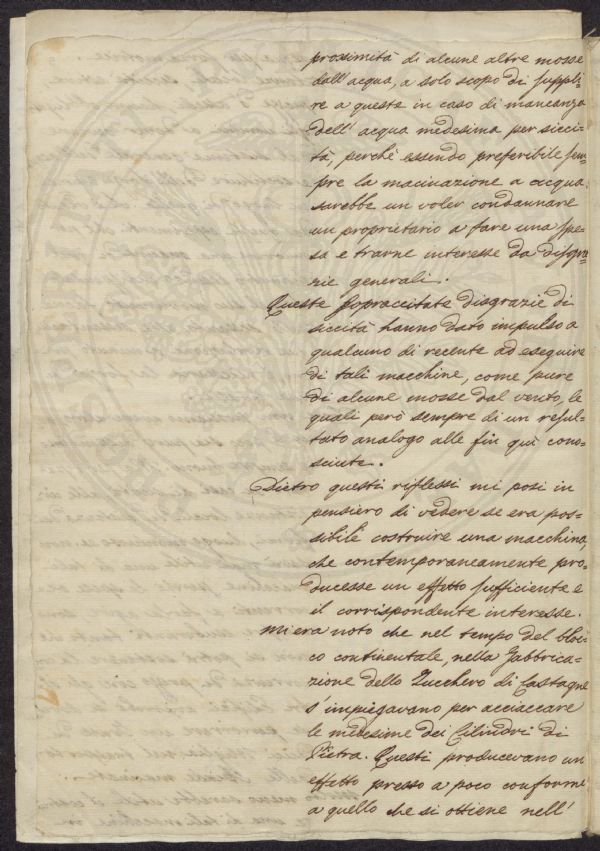 prossimità di alcune altre mosse
dall'acqua, a solo scopo di suppli=
re a queste in caso di mancanza
dell'acqua medesima per sicci=
tà, perchè essendo preferibile sem=
pre la macinazione a acqua
sarebbe un voler condannare
un proprietario a fare una spe=
sa e trarne interesse da disgra=
zie generali.
Queste sopraccitate disgrazie di
siccità hanno dato impulso a
qualcuno di recente ad eseguire
di tali macchine, come pure
di alcune mosse dal vento, le
quali però sempre di un resul=
tato analogo alle fin quì cono=
sciute.
Dietro questi riflessi mi posi in
pensiero di vedere se era pos=
sibile costruire una macchina,
che contemporaneamente pro=
ducesse un effetto sufficiente e
il corrispondente interesse.
Mi era noto che nel tempo del bloc=
co continentale, nella Fabbrica=
zione dello Zucchero di Castagne
s'impiegavano per acciaccare
le medesime dei Cilindri di
Pietra. Questi producevano un
effetto presso a poco conforme
a quello che si ottiene nell'